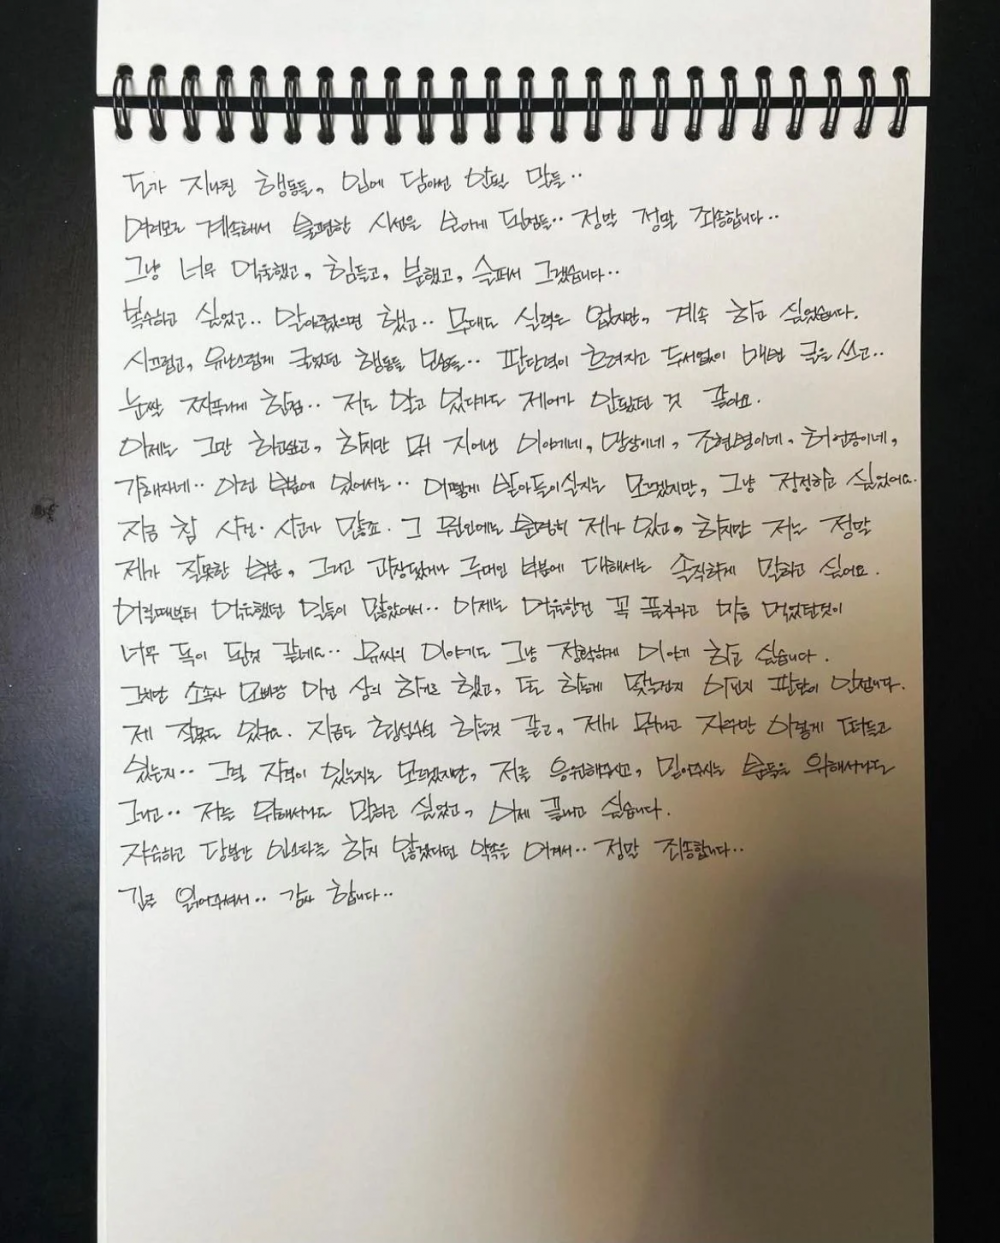 도가 지나친 행동들, 입에 담아선 안될 말들..
여러모로 계속해서 불편한 시선을 보내게 된점들.. 정말 정말 죄송합니다..
그냥 너무 억울했고, 힘들고, 분했고, 슬퍼서 그랬습니다..
복수하고 싶었고.. 알아줬으면 했고.. 무대도 실력은 없지만, 계속 하고 싶었습니다.
시끄럽고, 유난스럽게 굴었던 행동들 모습들.. 판단력이 흐려지고 두서없이 매번 글을 쓰고..
눈쌀 찌푸리게 한점.. 저도 알고 있다가도 제어가 안됐던 것 같아요.
이제는 그만 하고싶고, 하지만 뭐 지어낸 이야기네, 망상이네, 조현병이네, 허언증이네,
가해자네.. 이런 부분에 있어서는.. 어떻게 받아들이실지는 모르겠지만, 그냥 정정하고 싶었어요.
지금 참 사건·사고가 많죠. 그 원인에는 분명히 제가 있고, 하지만 저는 정말
제가 잘못한 부분, 그리고 과장됐거나 꾸며진 부분에 대해서는 솔직하게 말하고 싶어요.
어릴때부터 억울했던 일들이 많았어서.. 이제는 억울한건 꼭 풀자라고 마음 먹었던것이
너무 독이 된것 같네요.. 이야기도 그냥 정확하게 이야기 하고 싶습니다.
그치만 소속사 오빠랑 이건 상의 하기로 했고, 또 하는게 맞는건지 아닌지 판단이 안섭니다.
제 잘못도 있구요. 지금도 횡설수설 하는것 같고, 제가 뭐라고 자꾸만 이렇게 떠들고
있는지.. 그럴 자격이 있는지는 모르겠지만, 저를 응원해주시고, 믿어주시는 분들을 위해서라도
그리고.. 저를 위해서라도 말하고 싶었고, 이제 끝내고 싶습니다.
자숙하고 당분간 인스타를 하지 않겠다던 약속을 어겨서.. 정말 죄송합니다..
긴글 읽어주셔서.. 감사 합니다..